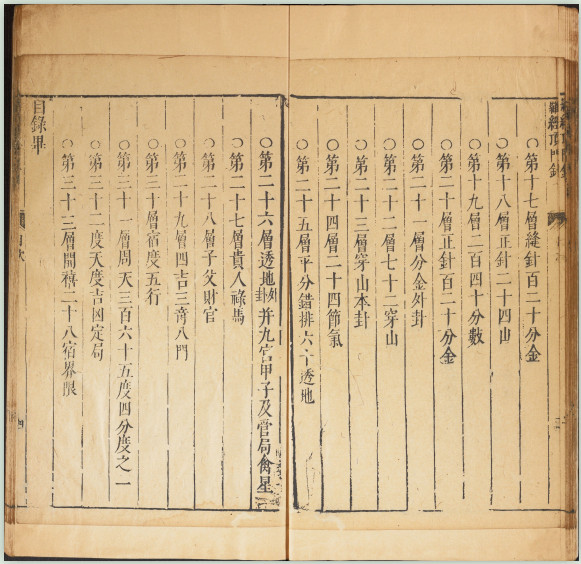 羅經頂門針
○第十七層縫針百二十分金
○第十八層正針二十四山
○第十九層二百四十分數
○第二十層正針百二十分金
○第二十一層分金外卦
○第二十二層七十二穿山
○第二十三層穿山本卦
○第二十四層二十四節氣
○第二十五層平分錯排六十透地
○第二十六層透地外卦并九宮甲子及營局禽星
○第二十七層貴人祿馬
○第二十八層子父財官
○第二十九層四吉三奇八門
○第三十層宿度五行
○第三十一層周天三百六十五度四分度之一
○第三十二度天度吉凶定局
○第三十三層開禧二十八宿界限
目錄畢
目次
四